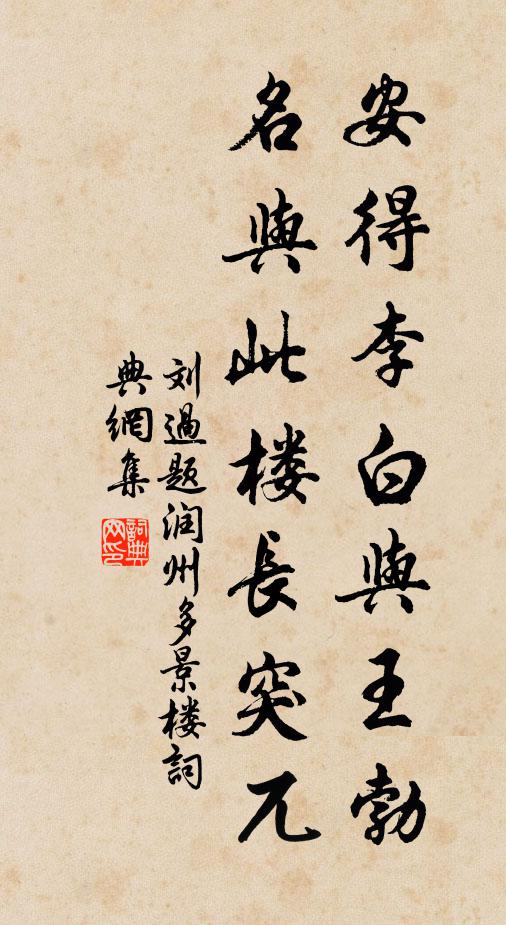 安得李白與王勃
名與此楼長突兀
刘過题润州多景楼詞
典網集
詞典
网印